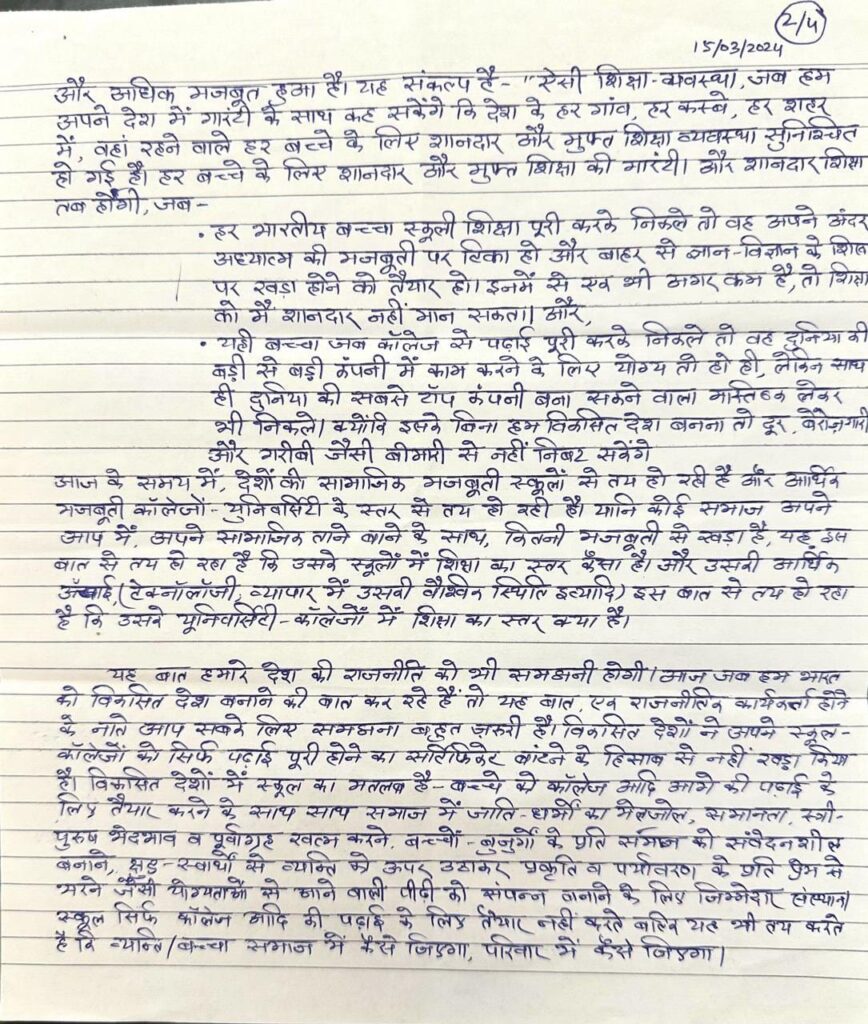 2/4
15/03/2024
और अधिक मजबूत हुआ है। यह संकल्प है - "ऐसी शिक्षा-व्यवस्था, जब हम
अपने देश में गारंटी के साथ कह सकेंगे कि देश के हर गांव, हर कस्बे, हर शहर
में, वहां रहने वाले हर बच्चे के लिए शानदार और मुफ्त शिक्षा व्यवस्था सुनिश्चित
हो गई है। हर बच्चे के लिए शानदार और मुफ्त शिक्षा की गारंटी। और शानदार शिक्षा
तब होगी, जब -
• हर भारतीय बच्चा स्कूली शिक्षा पूरी करके निकले तो वह अपने अंदर
अध्यात्म की मजबूती पर टिका हो और बाहर से ज्ञान-विज्ञान के
पर खड़ा होने को तैयार हो। इनमें से एक भी अगर कम है, तो शिक्षा
को मैं शानदार नहीं मान सकता। और,
• यही बच्चा जब कॉलेज से पढ़ाई पूरी करके निकले तो वह दुनिया की
बड़ी से बड़ी कंपनी में काम करने के लिए योग्य तो हो ही, लेकिन साथ
ही दुनिया की सबसे टॉप कंपनी बना सकने वाला मस्तिष्क लेकर
भी निकले। क्योंकि इसके बिना हम विकसित देश बनना तो दूर, बेरोज़गारी
और गरीबी जैसी बीमारी से नहीं निबट सकेंगे
आज के समय में, देशों की सामाजिक मजबूती स्कूलों से तय हो रही है और आर्थिक
मजबूती कॉलेजों-युनिवर्सिटी के स्तर से तय हो रही है। यानि कोई समाज अपने
आप में, अपने सामाजिक ताने बाने के साथ, कितनी मजबूती से खड़ा है, यह इस
बात से तय हो रहा है कि उसके स्कूलों में शिक्षा का स्तर कैसा है। और उसकी आर्थिक
ऊंचाई, (टेक्नॉलॉजी, व्यापार में उसकी वैश्विक स्थिति इत्यादि) इस बात से तय हो रहा
है कि उसके यूनिवर्सिटी-कॉलेजों में शिक्षा का स्तर क्या है।
यह बात हमारे देश की राजनीति को भी समझनी होगी। आज जब हम भारत
को विकसित देश बनाने की बात कर रहे हैं तो यह बात, एक राजनीतिक कार्यकर्ता होने
के नाते आप सबके लिए समझना बहुत ज़रूरी है। विकसित देशों ने अपने स्कूल-
कॉलेजों को सिर्फ पढ़ाई पूरी होने का सर्टिफिकेट बांटने के हिसाब से नहीं खड़ा किया
है। विकसित देशों में स्कूल का मतलब है - बच्चे को कॉलेज आदि आगे की पढ़ाई के
लिए तैयार करने के साथ साथ समाज में जाति-धर्मों का मेलजोल, समानता, स्त्री-
पुरुष भेदभाव व पूर्वाग्रह खत्म करने, बच्चों-बुजुर्गों के प्रति समाज को संवेदनशील
बनाने, क्षुद्र-स्वार्थों से व्यक्ति को ऊपर उठाकर प्रकृति व पर्यावरण के प्रति प्रेम से
भरने जैसी योग्यताओं से आने वाली पीढ़ी को संपन्न बनाने के लिए जिम्मेदार संस्थान।
स्कूल सिर्फ कॉलेज आदि की पढ़ाई के लिए तैयार नहीं करते बल्कि यह भी तय करते
है कि व्यक्ति/बच्चा समाज में कैसे जिएगा, परिवार में कैसे जिएगा।